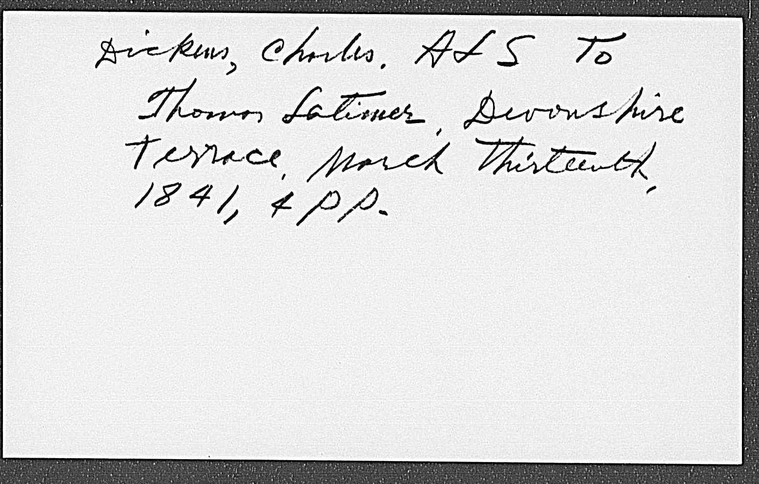 Dickens, Charles. ALS To
Thomas Latimer, Devonshire
Terrace, March Thirteenth,
1841, 4 pp.